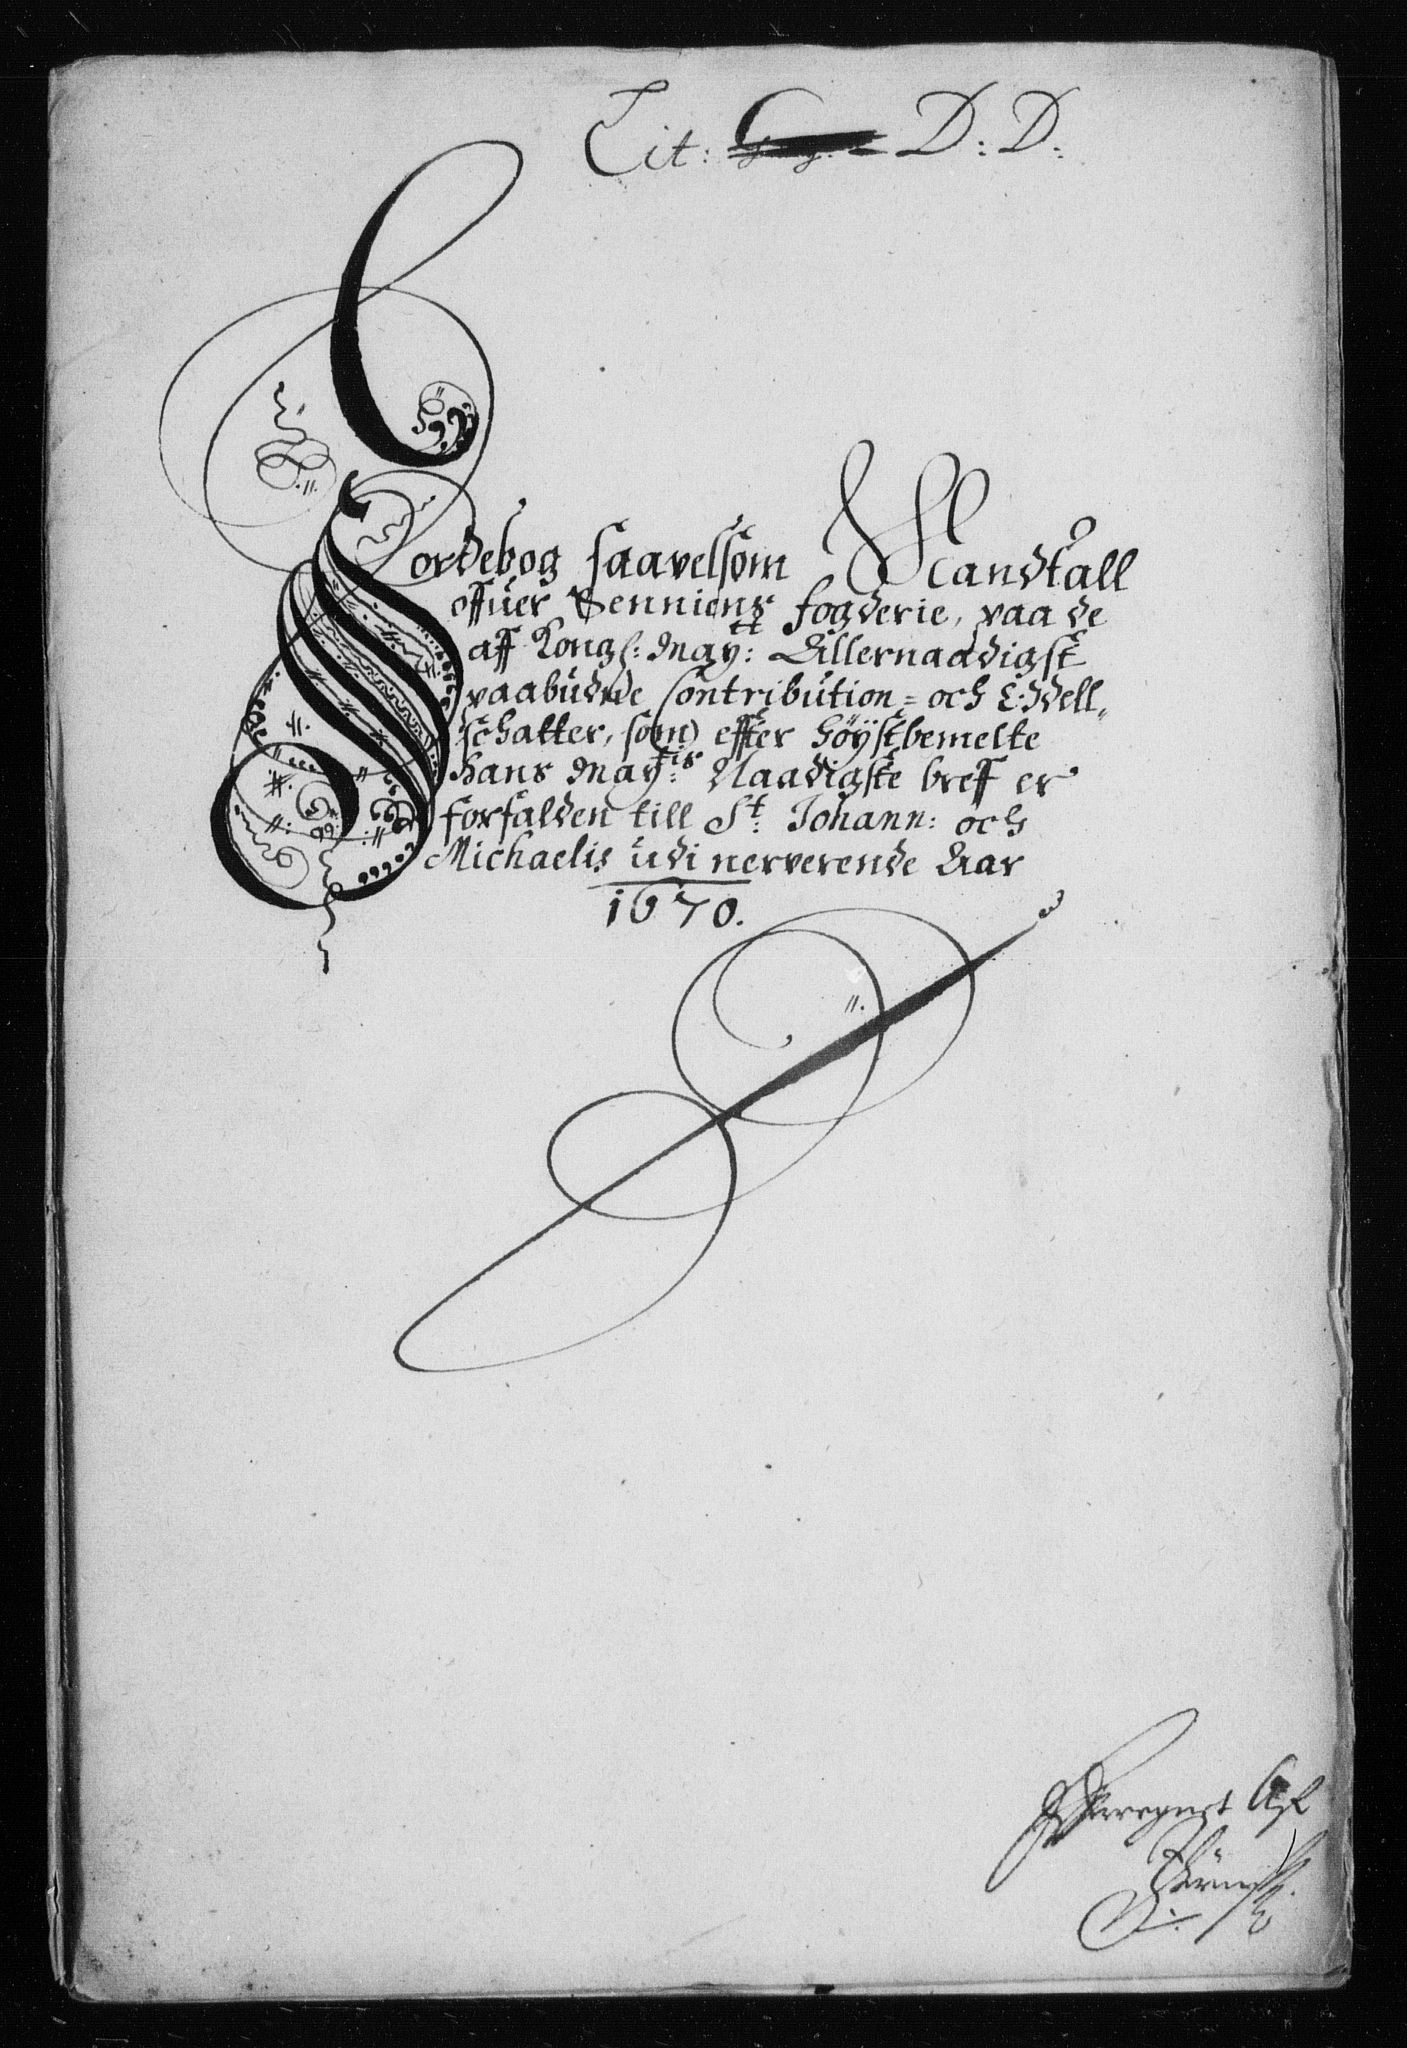 Lit: D: D:
Jordebog saavelsom Mandtall
offuer Senniens fogderie, paa de
aff Kongl: May:tt Allernaadigst
paabudne Contribution- och Odell-
schatter, som effter höÿstbemelte
Hans May:tis Naadigste breff er
forfalden till St: Johann: och
Michaelis udi nerverende Aar
1670.